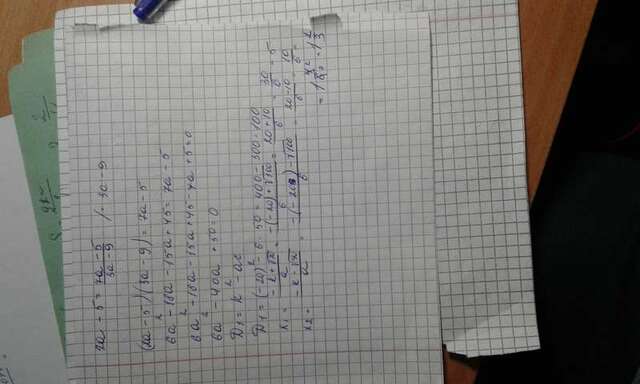 2a - 5 = (7a - 5)/(3a - 9) / · 3a - 9
(2a - 5)(3a - 9) = 7a - 5
6a² - 18a - 15a + 45 = 7a - 5
6a² - 18a - 15a + 45 - 7a + 5 = 0
6a² - 40a + 50 = 0
D₁ = k² - ac
D₁ = (-20)² - 6 · 50 = 400 - 300 = 100
x₁ = (-k + √D₁)/a = (-(-20) + √100)/6 = (20 + 10)/6 = 30/6 = 5
x₂ = (-k - √D₁)/a = (-(-20) - √100)/6 = (20 - 10)/6 = 10/6 =